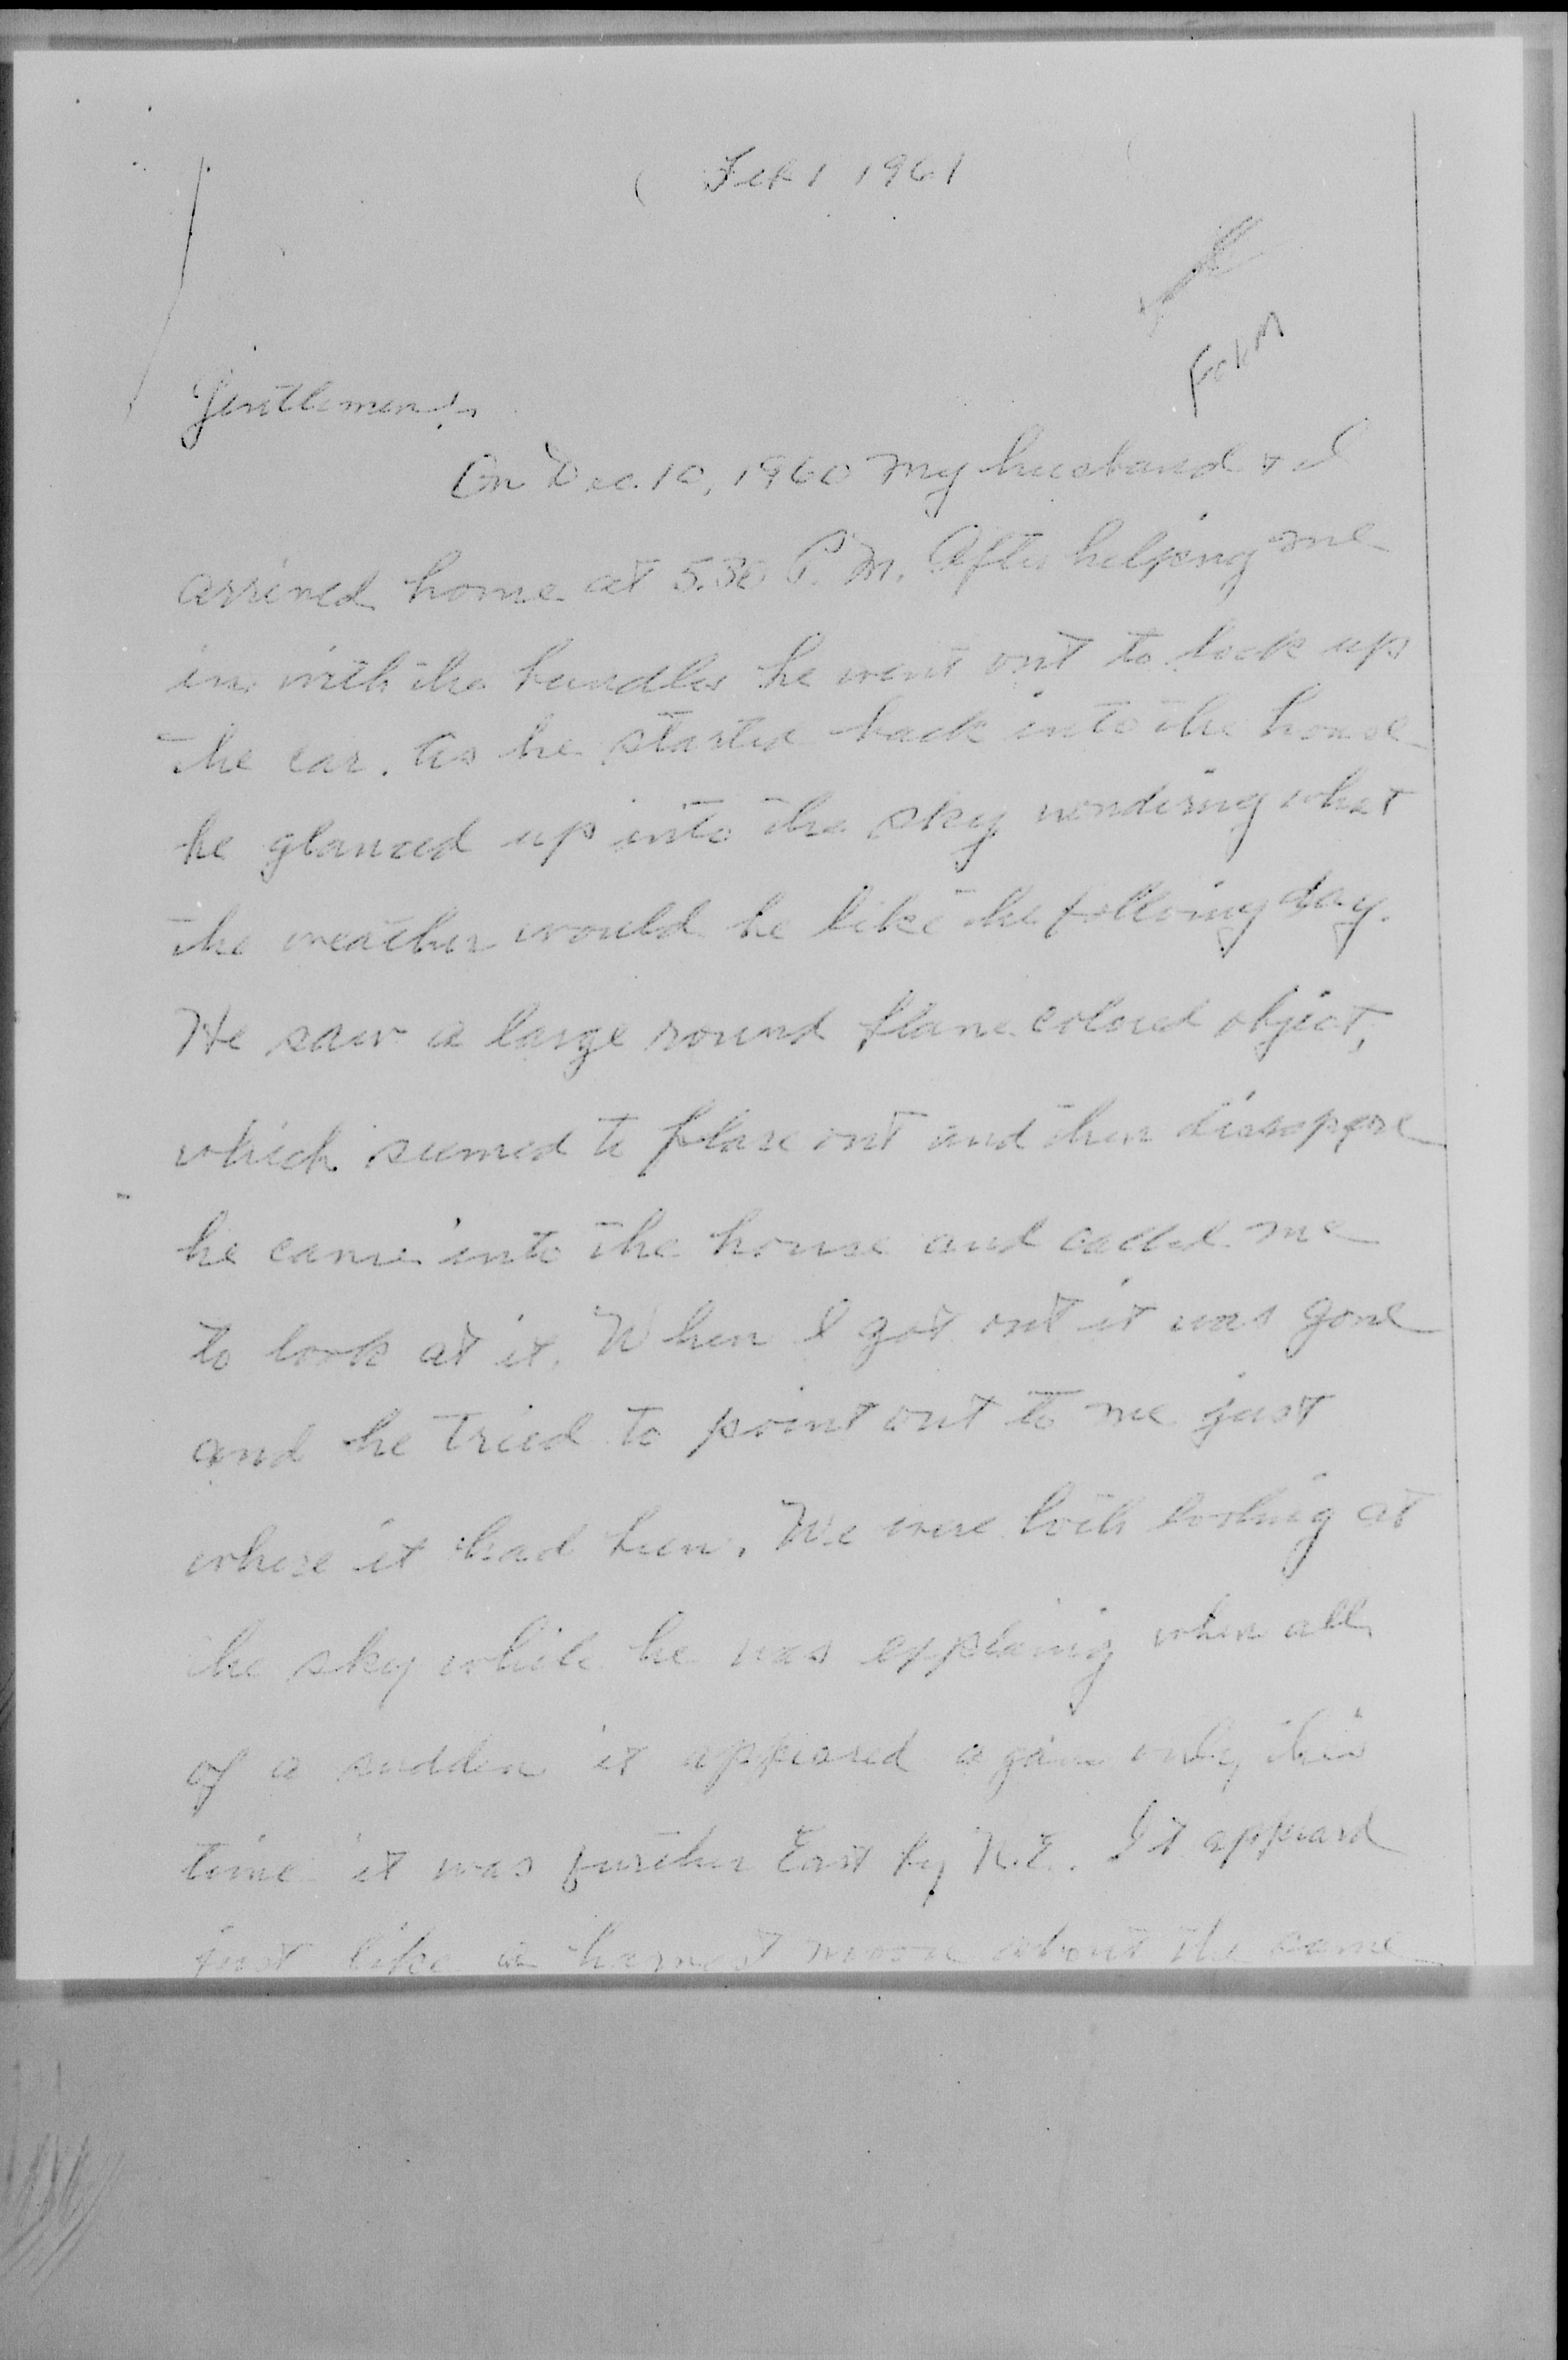 Feb 1 1961
Form
Gentlemen:
On Dec. 10, 1960 my husband & I
arrived home at 5.30 P.M. After helping me
in with the bundles he went out to lock up
the car. As he started back into the house
he glanced up into the sky wondering what
the weather would be like the following day.
He saw a large round flame colored object,
which seemed to flare out and then
he came into the house and called me
to look at it. When I got out it was gone
and he tried to point out to me just
where it had been. We were both looking at
the sky while he was explaing when all
of a sudden it appeared again only this
time it was further East by N.E. It appeard
just like a harvest moon about the same